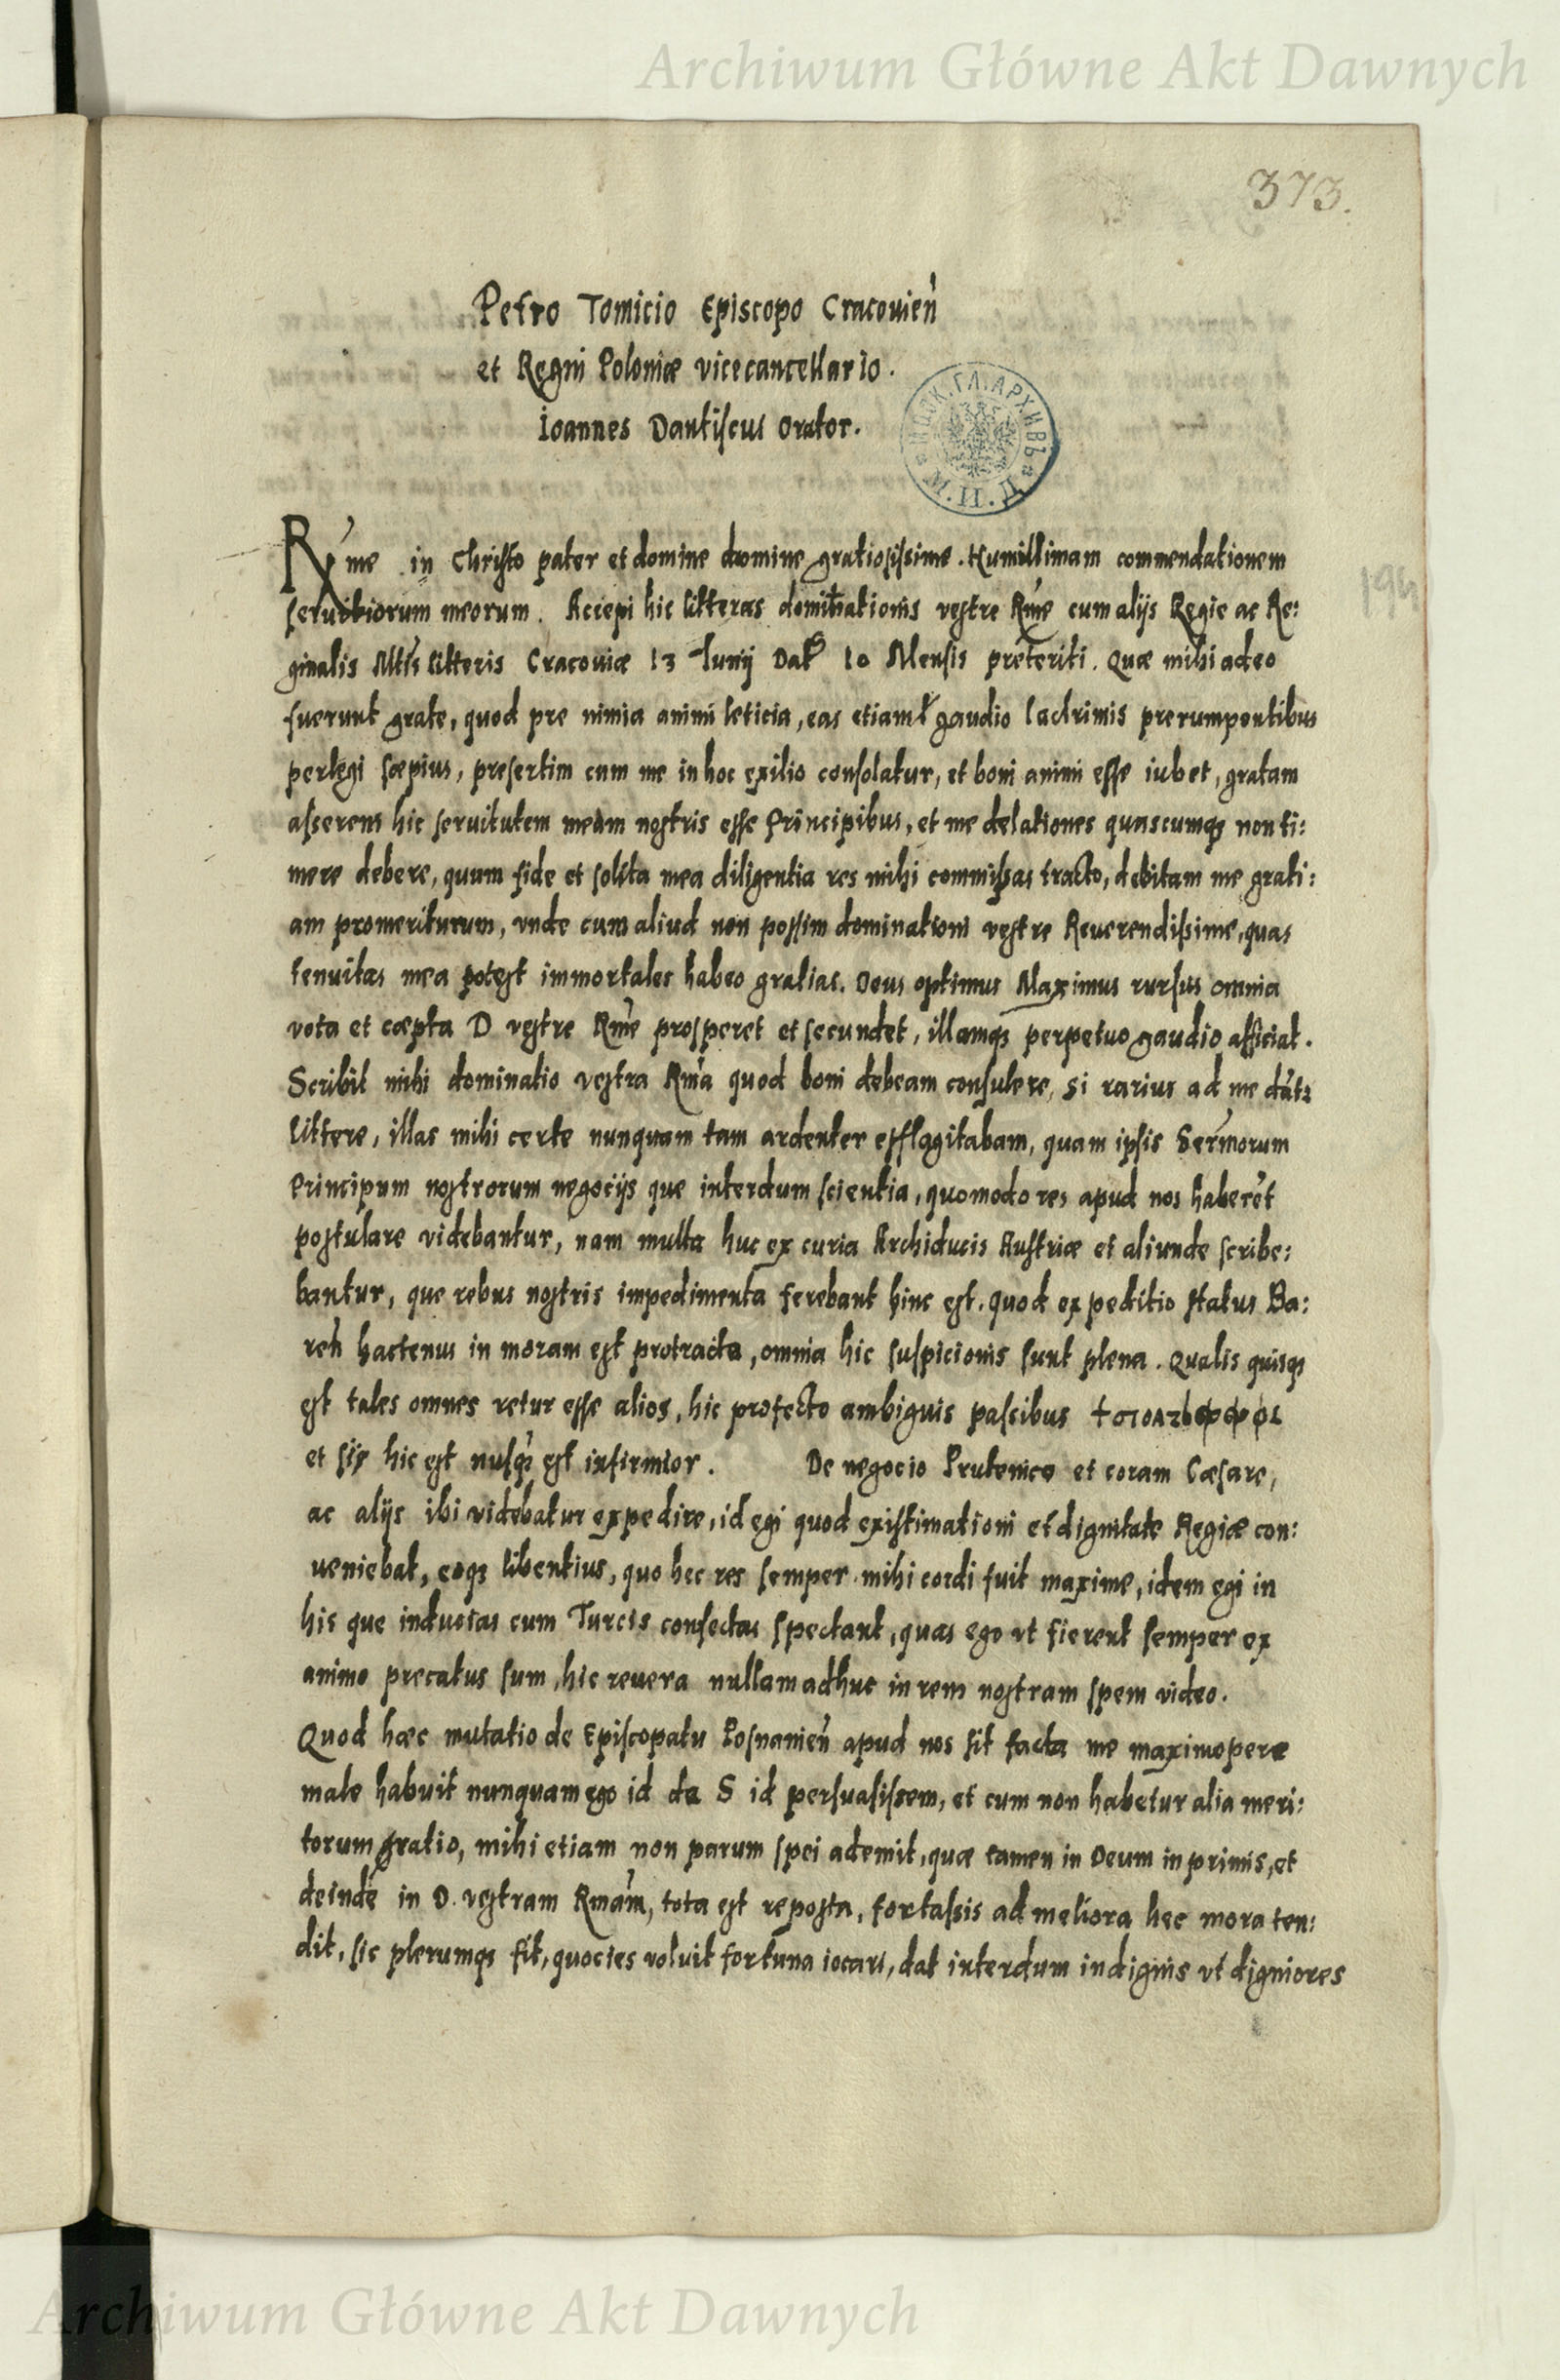 Archiwum Główne Akt Dawnych
373.
Petro Tomicio Episcopo Cracouień
et Regni Poloniæ vicecancellario.
Ioannes Dantiscus Orator.
Rme in Christo pater et domine domine gratiosissime. Humillimam commendationem
seruitiorum meorum. Accepi hic litteras dominationis vestre Rme cum alijs Regie ac Re:
ginalis Mtis litteris Cracouiæ 13 Iunij Dat 10 Mensis preteriti. Quæ mihi adeo
fuerunt grate, quod pre nimia animi leticia, eas etiam gaudio lachrimis prerumpentibus
perlegi sæpius, presertim cum me in hoc exilio consolatur, et boni animi esse iubet, gratam
asserens hic seruitutem meam nostris esse Principibus, et me delationes quascumqȝ non ti:
mere debere, quum fide et solita mea diligentia res mihi commissas tracto, debitam me grati:
am promeriturum, vnde cum aliud non possim dominationi vestre Reuerendissime, quas
tenuitas mea potest immortales habeo gratias. Deus optimus Maximus rursus omnia
vota et cœpta D vestre Rme prosperet et secundet, illamqȝ perpetuo gaudio afficiat.
Scribit mihi dominatio vestra Rma quod boni debeam consulere, si rarius ad me dātr
littere, illas mihi certe nunquam tam ardenter efflagitabam, quam ipsis Sermorum
Principum nostrorum negocijs que interdum scientia, quomodo res apud nos haberēt
postulare videbantur, nam multa huc ex curia Archiducis Austriæ et aliunde scribe:
bantur, que rebus nostris impedimenta ferebant hinc est. quod expeditio status Ba:
reń hactenus in moram est protracta, omnia hic suspicionis sunt plena. Qualis quisqȝ
est tales omnes retur esse alios, hic profecto ambiguis passibus
et hic est nusqȝ est infirmior. De negocio Prutenico et coram Cæsare,
ac alijs ibi videbatur expedire, id egi quod existimationi et dignitate Regiæ con:
ueniebat, eoqȝ libentius, quo hec res semper mihi cordi fuit maxime, idem egi in
his que inducias cum Turcis confectas spectant, quas ego vt fierent semper ex
animo precatus sum, hic reuera nullam adhuc in rem nostram spem video.
Quod hæc mutatio de Episcopatu Posnanień apud nos sit facta me maximopere
male habuit nunquam ego id de S id persuasissem, et cum non habetur alia meri:
torum gratio, mihi etiam non parum spei ademit, quæ tamen in Deum in primis, et
deinde in D. vestram Rmam, tota est reposta, fortassis ad meliora hec mora ten:
dit, sic plerumqȝ fit, quocies voluit fortuna iocari, dat interdum indignis vt digniores
Archiwum Główne Akt Dawnych